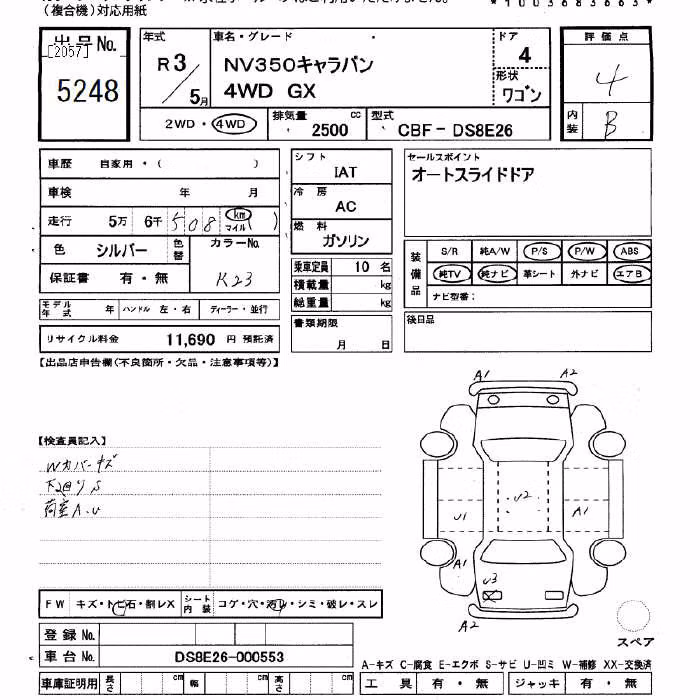 (複合機)対応用紙
*1003683663*
出品No.
[2057]
5248
年式
R3
5月
車名・グレード
NV350キャラバン
4WD GX
ドア
4
形状
ワゴン
評価点
4
内装
B
2WD・4WD
排気量
2500
cc
型式
CBF-DS8E26
車歴 自家用・( )
車検 年 月
走行 5万 6千 508 km マイル ( )
色 シルバー 色替 カラーNo.
K23
保証書 有・無
モデル年式 年 ハンドル 左・右 ディーラー・並行
リサイクル料金 11,690 円 預託済
シフト
IAT
冷房
AC
燃料
ガソリン
乗車定員 10 名
積載量 kg
総重量 kg
書類期限
月 日
セールスポイント
オートスライドドア
装備品
S/R 純A/W P/S P/W ABS
純TV 純ナビ 革シート 外ナビ エアB
ナビ型番:
後日品
【出品店申告欄(不良箇所・欠品・注意事項等)】
【検査員記入】
Wカバーキズ
下回りS
荷室A.U
A1
A2
U2
U1
A1
A1
U3
A2
スペア
FW キズ・トビ石・割レX シート内装 コゲ・穴・汚レ・シミ・破レ・スレ
登録No.
車台No. DS8E26-000553
車庫証明用 長さ cm 幅 cm 高さ cm
A-キズ C-腐食 E-エクボ S-サビ U-凹ミ W-補修 XX-交換済
工具 有・無 ジャッキ 有・無